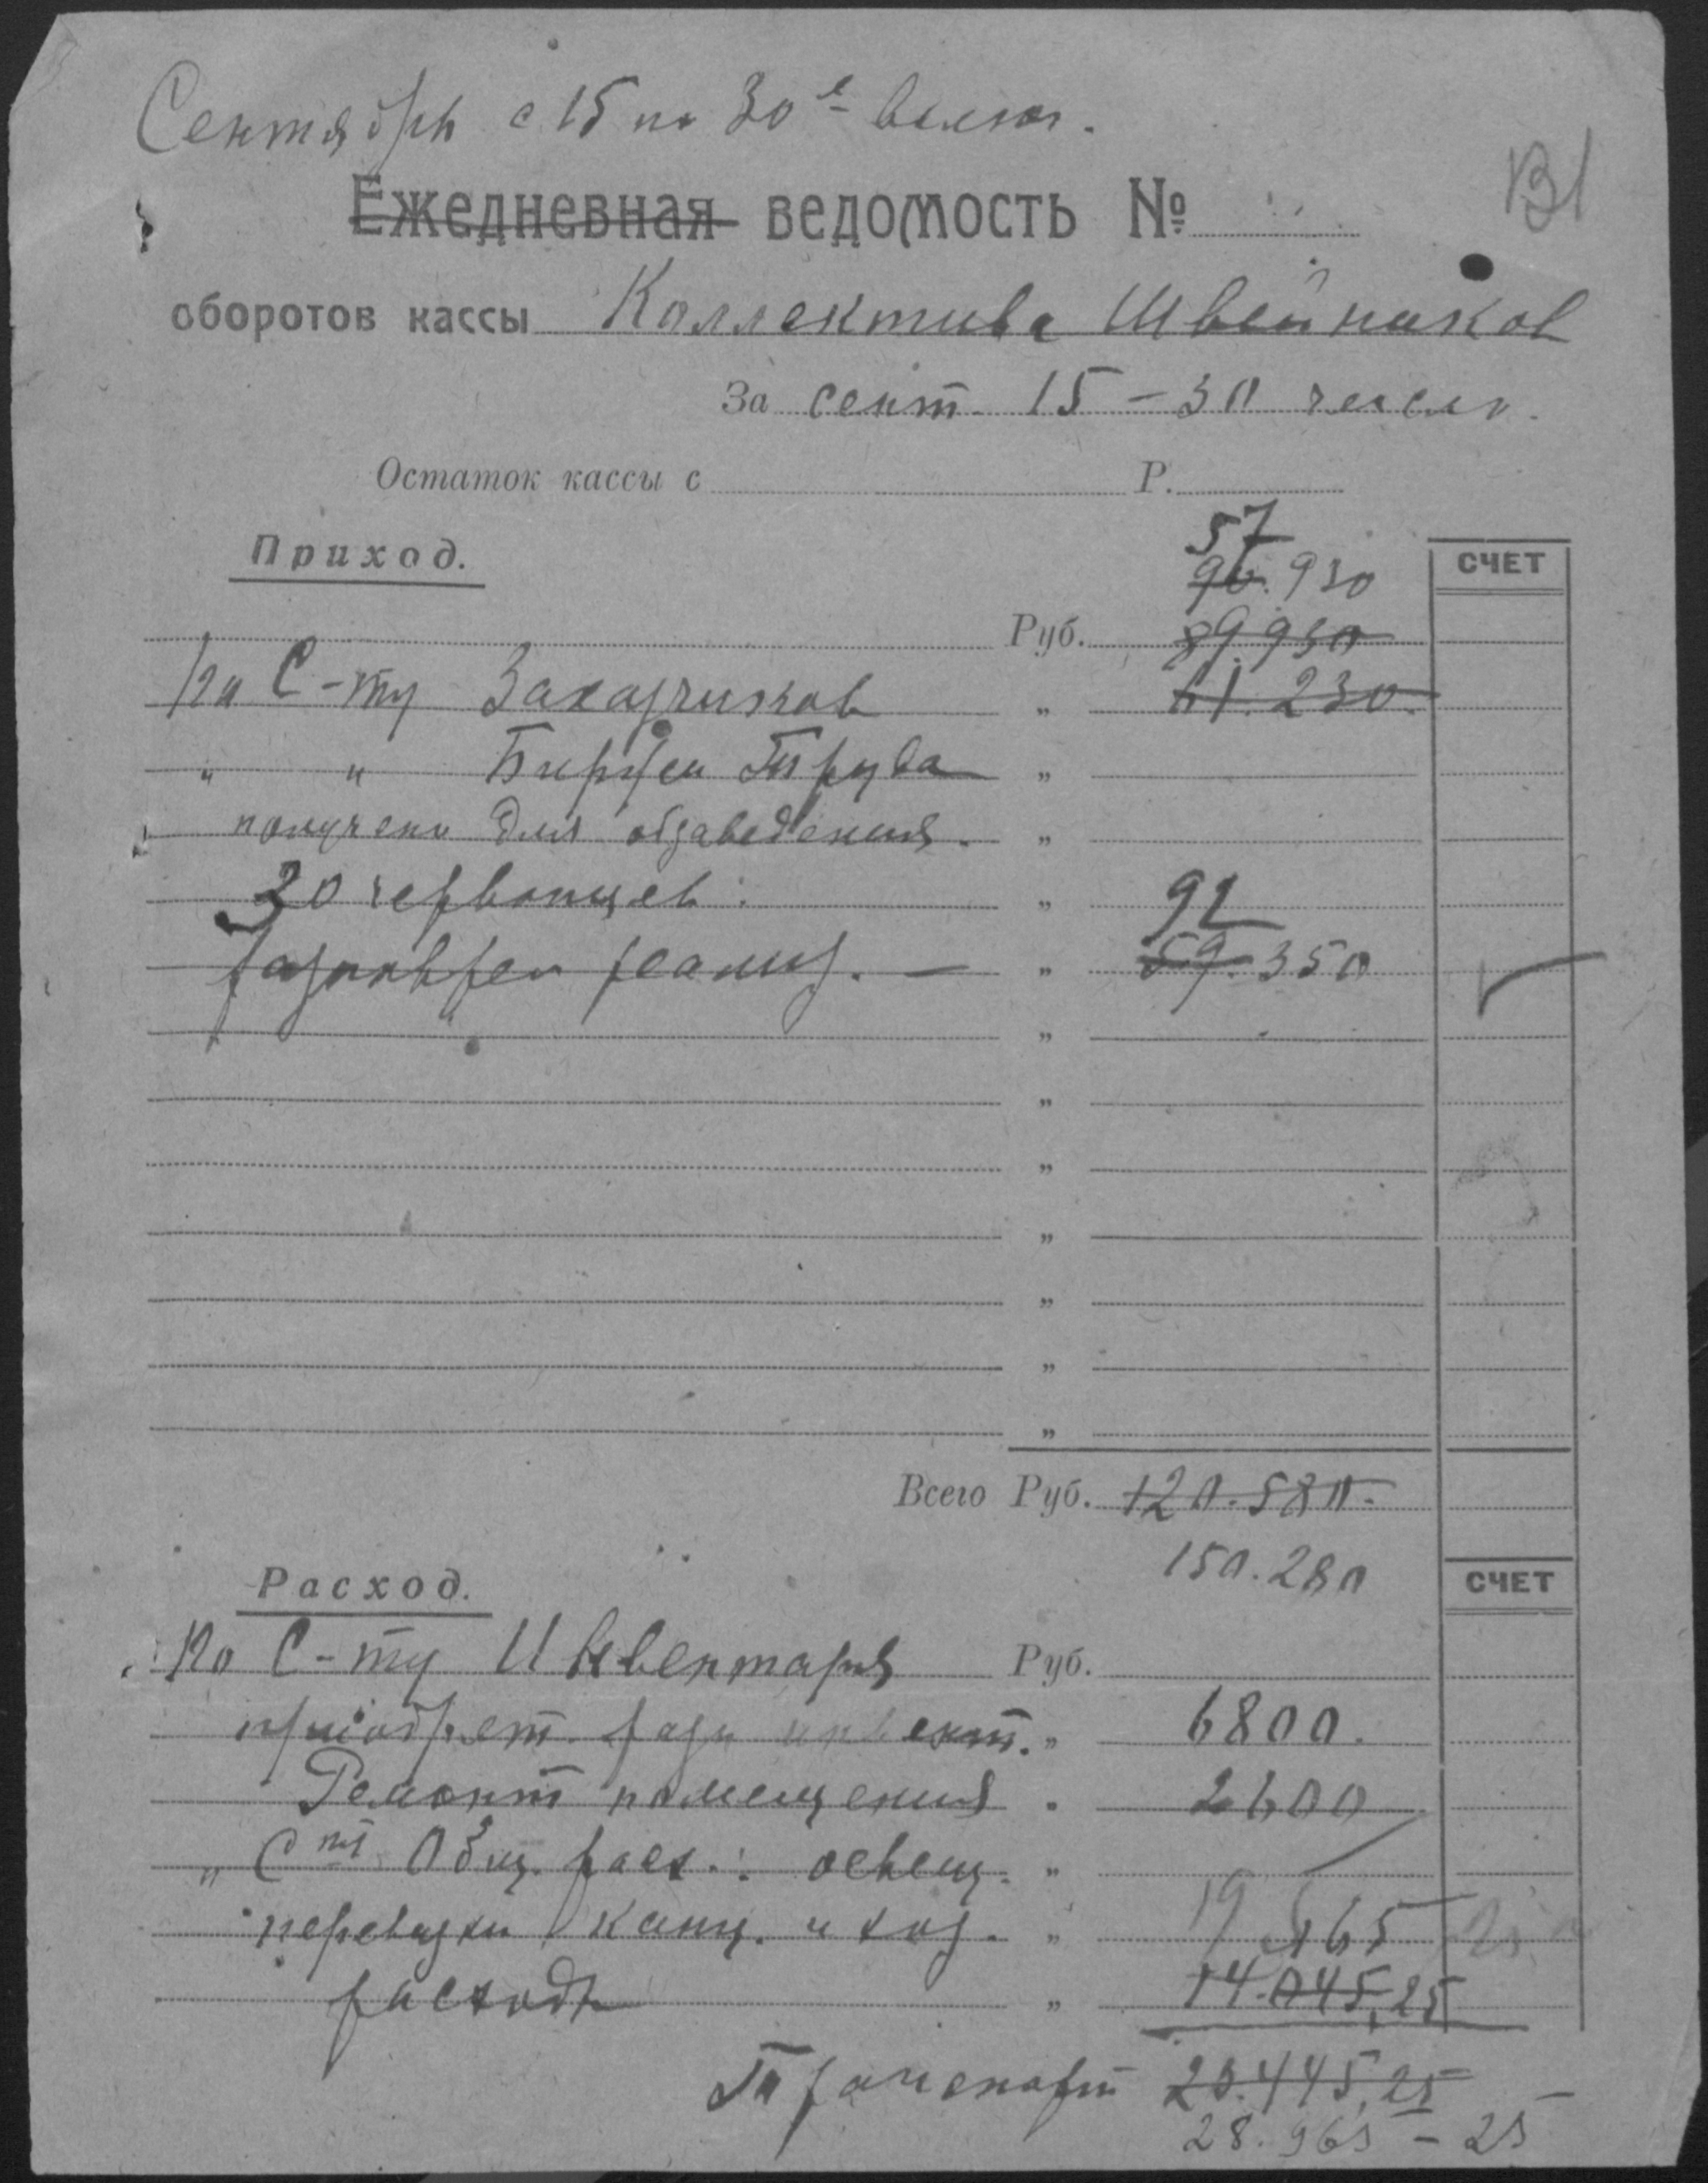 Сентябрь с 15 по 30е включ.
131
Ежедневная ведомость №
оборотов кассы Коллектива Швейников
За сент. 15 – 30 число
Остаток кассы с Р.
57
Приход. 90.930 СЧЕТ
Руб. 89.930
По С-ту Заказчиков „ 61.230.
„ „ Биржи Труда „
получено для обзаведения. „
30 червонцев. „ 92
разновреи реализ. — „ 59.350
„
„
„
„
„
„
„
Всего Руб. 120.580.
150.280
Расход. СЧЕТ
По С-ту Инвентаря Руб.
приобрет. разн инвент. „ 6800.
Ремонт помещения „ 2600
„ Сту Общ. расх.: освещ. „
перевозки канц. и хоз. „ 19 565 25
расходы „ 14.045,25
Транспорт 20.445,25
28.965 – 25